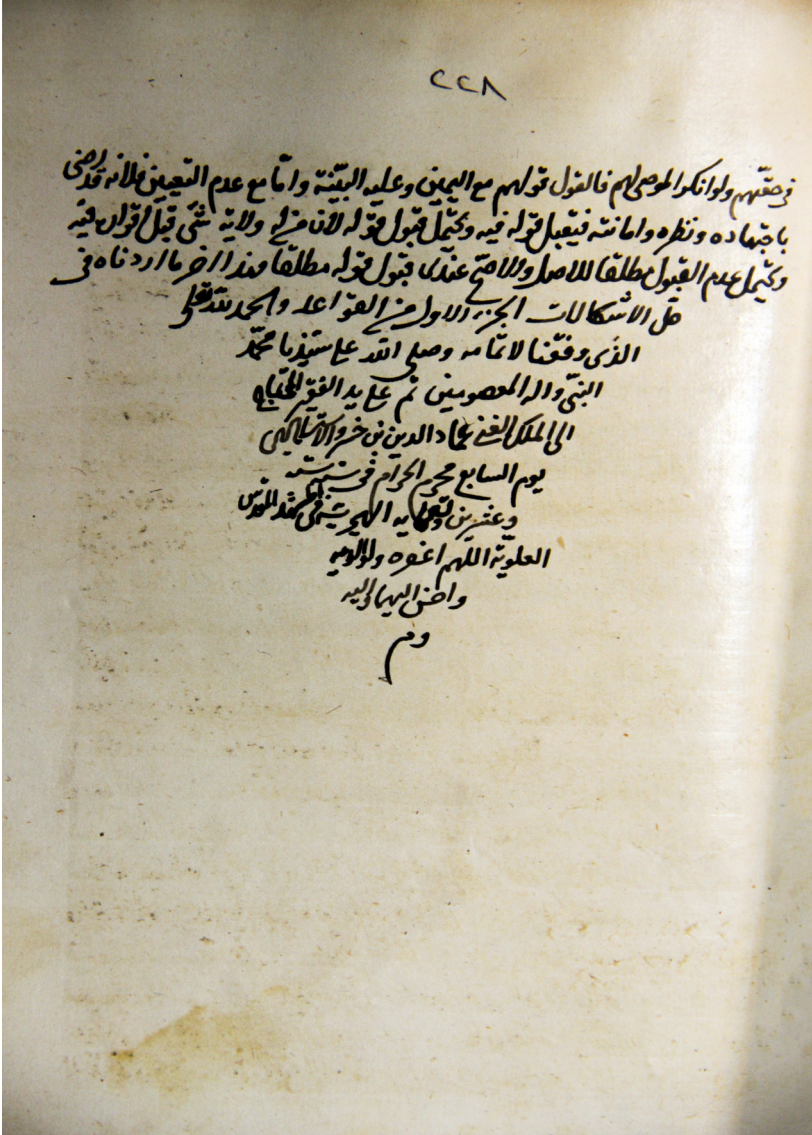 ٢٢٨
في حقهم ولو انكر الموصى لهم فالقول قولهم مع اليمين وعليه البيّنة وامّا مع عدم التعيين فلانه قد رضى
باجتهاده ونظره وامانته فيقبل قوله فيه ويحتمل قبول قوله لان من له ولاية شئ قبل اقواله فيه
ويحتمل عدم القبول مطلقا للاصل والاصح عندى قبول قوله مطلقا فهذا اخر ما اردناه فى
حل الاشكالات الجزء الاول من القواعد والحمد لله تعالى
الذى وفقنا لاتمامه وصلى الله على سيدنا محمّد
النبىّ واله المعصومين تم على يد الفقير المحتاج
الى الملك الغنى عماد الدين بن خسرو
يوم السابع محرم الحرام فى سنة
وعشرين وتسعمايه الهجرية فى المشهد المقدس
العلويّة اللهم اغفره ولوالديه
واحسن اليهما واليه
وم